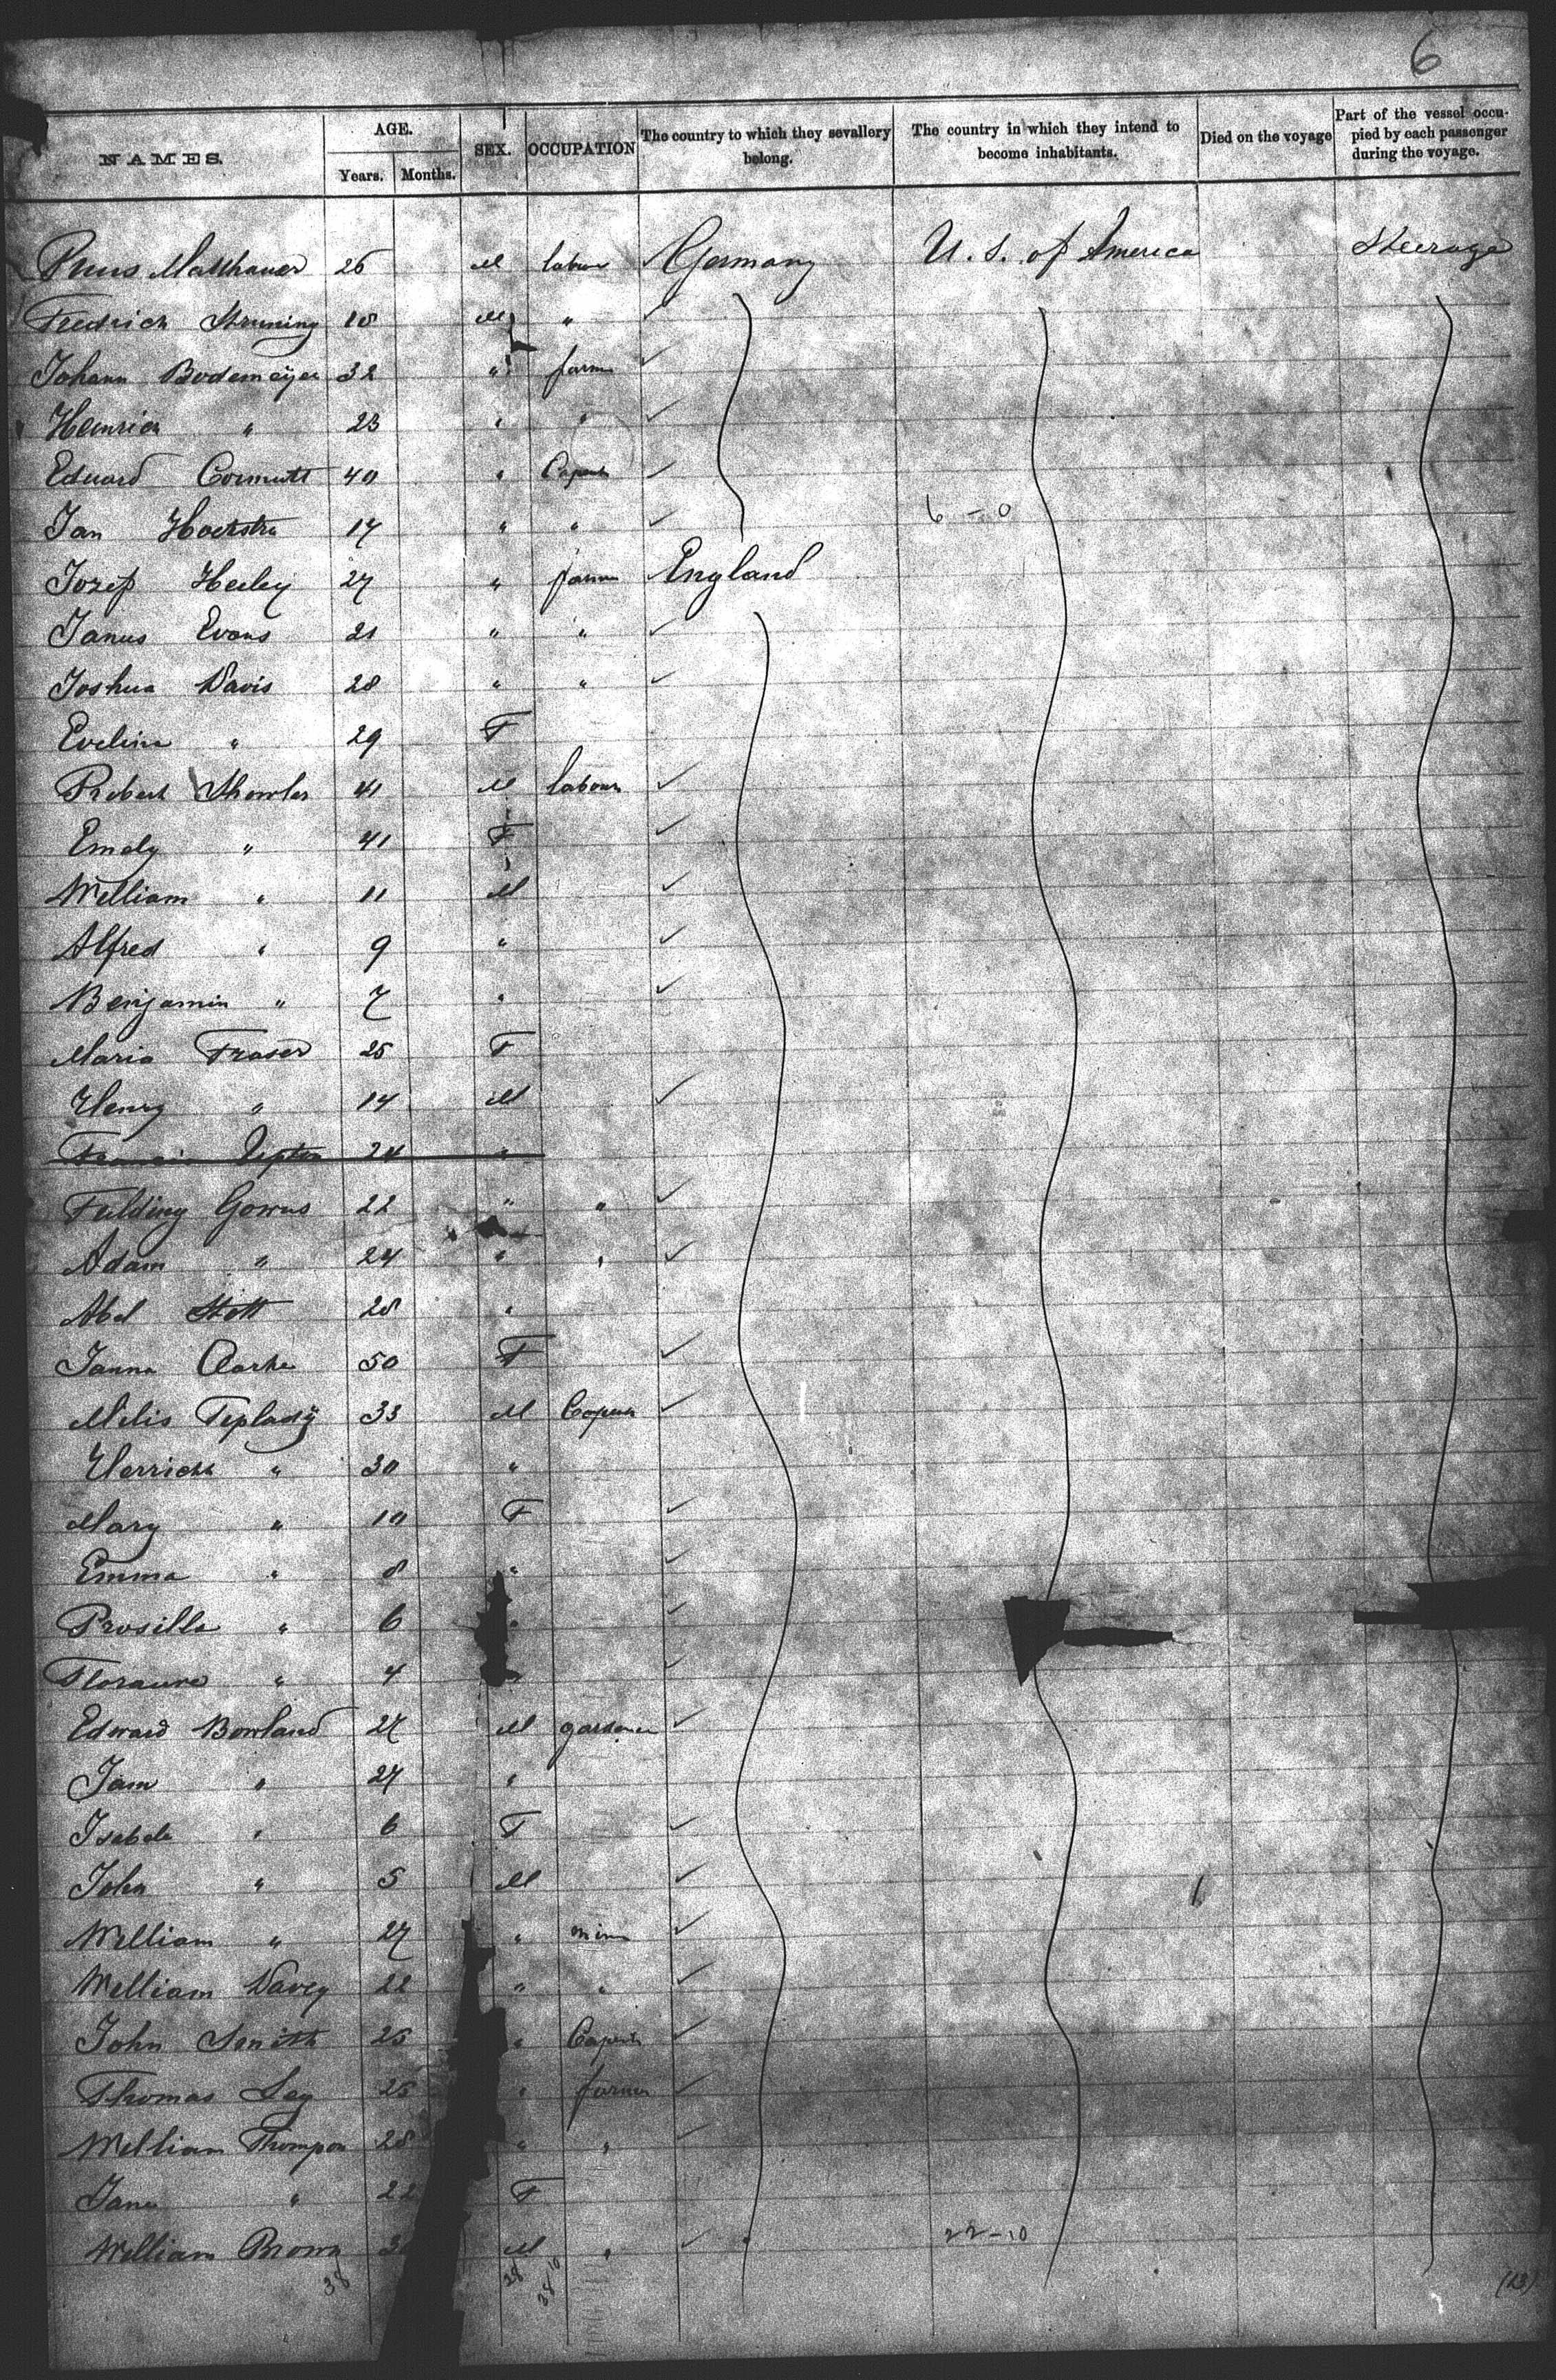 6
NAMES. AGE. SEX. OCCUPATION The country to which they sevallery belong. The country in which they intend to become inhabitants. Died on the voyage Part of the vessel occu-pied by each passenger during the voyage.
Years. Months.
26 M labour Germany U. S. of America Steerage
Fredrich Struning 18 M "
Johann Bodemeyer 32 " farm
Heinrich " 23 " "
Eduard Cormutt 40 "
Jan Hoekstra 17 " " 6 - 0
Jozef Heeley 27 " farm England
Janus Evans 21 " "
Joshua Davis 28 " "
Evelina " 29 F
Robert Showler 41 M labour
Emely " 41 F
William " 11 M
Alfred " 9 "
Benjamin " 7 "
Maria Fraser 25 F
Henry " 14 M
24 "
Fulding Gowus 22 " "
Adam " 24 " "
Abel Stott 28 "
Janna Clarke 50 F
Melis Teplady 33 M
Herrick " 30 "
Mary " 10 F
Emma " 8 "
Prosilla " 6 "
" 4 "
Edward Bowland 27 M gardener
Jam " 27 "
Isabele " 6 F
John " 5 M
William " 27 " min
William Davey 22 " "
John Smith 25 "
Thomas Ley 25 " farmer
William Thompson 28 " "
Jane " 22 F
William Brown M " 22-10
38 28 10
38
(13)